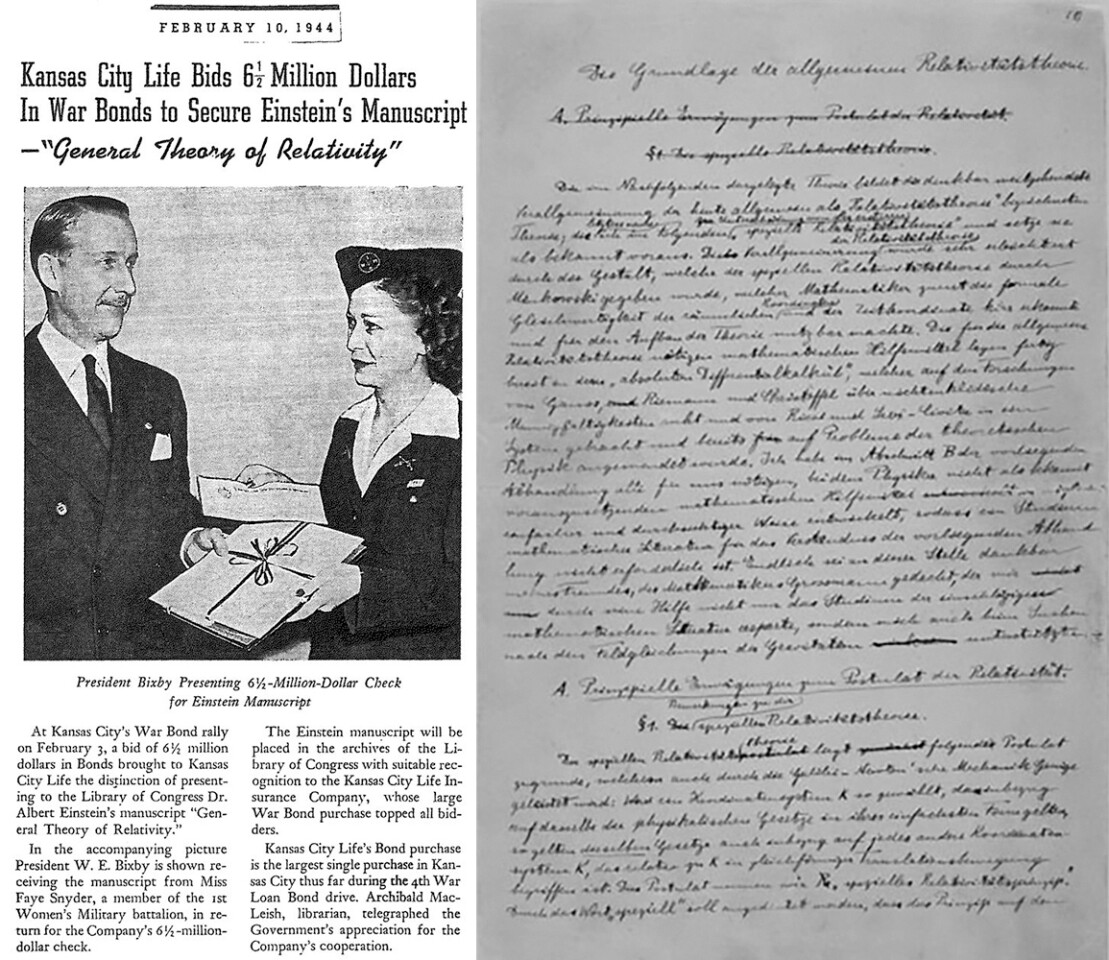 FEBRUARY 10, 1944
Kansas City Life Bids 6½ Million Dollars
In War Bonds to Secure Einstein's Manuscript
—"General Theory of Relativity"
President Bixby Presenting 6½-Million-Dollar Check
for Einstein Manuscript
At Kansas City's War Bond rally
on February 3, a bid of 6½ million
dollars in Bonds brought to Kansas
City Life the distinction of present-
ing to the Library of Congress Dr.
Albert Einstein's manuscript "Gen-
eral Theory of Relativity."
In the accompanying picture
President W. E. Bixby is shown re-
ceiving the manuscript from Miss
Faye Snyder, a member of the 1st
Women's Military battalion, in re-
turn for the Company's 6½-million-
dollar check.
The Einstein manuscript will be
placed in the archives of the Li-
brary of Congress with suitable rec-
ognition to the Kansas City Life In-
surance Company, whose large
War Bond purchase topped all bid-
ders.
Kansas City Life's Bond purchase
is the largest single purchase in Kan-
sas City thus far during the 4th War
Loan Bond drive. Archibald Mac-
Leish, librarian, telegraphed the
Government's appreciation for the
Company's cooperation.
Die Grundlage der allgemeinen Relativitätstheorie.
A. Prinzipielle Erwägungen zum Postulat der Relativität.
§1. Die spezielle Relativitätstheorie.
Die im Nachfolgenden dargelegte Theorie bildet die denkbar weitgehendste
Verallgemeinerung der heute allgemein als „Relativitätstheorie" bezeichneten
Theorie; die im Folgenden „spezielle Relativitätstheorie" und setze sie
als bekannt voraus. Die Verallgemeinerung der Relativitätstheorie wurde sehr erleichtert
durch die Gestalt, welche der speziellen Relativitätstheorie durch
Minkowski gegeben wurde, welcher Mathematiker zuerst die formale
Gleichwertigkeit der räumlichen Koordinaten und der Zeitkoordinate klar erkannte
und für den Aufbau der Theorie nutzbar machte. Die für die allgemeine
Relativitätstheorie nötigen mathematischen Hilfsmittel lagen fertig
bereit in dem „absoluten Differentialkalkül", welcher auf den Forschungen
von Gauss, und Riemann und Christoffel über nichteuklidische
Mannigfaltigkeiten ruht und von Ricci und Levi-Civita in ein
System gebracht und bereits auf Probleme der theoretischen
Physik angewendet wurde. Ich habe im Abschnitt B der vorliegenden
Abhandlung alle für uns nötigen, bei dem Physiker nicht als bekannt
vorauszusetzenden mathematischen Hilfsmittel in möglichst
einfacher und durchsichtiger Weise entwickelt, sodass ein Studium
mathematischer Literatur für das Verständnis der vorliegenden Abhand-
lung nicht erforderlich ist. Endlich sei an dieser Stelle dankbar
meines Freundes, des Mathematikers Grossmann gedacht, der mir
durch seine Hilfe nicht nur das Studium der einschlägigen
mathematischen Literatur ersparte, sondern mich auch beim Suchen
nach den Feldgleichungen der Gravitation unterstützte.
A. Prinzipielle Erwägungen zum Postulat der Relativität.
§1. Bemerkungen zu der speziellen Relativitätstheorie.
Der speziellen Relativitätstheorie liegt folgendes Postulat
zugrunde, welchem auch durch die Galilei-Newton'sche Mechanik Genüge
geleistet wird: Wird ein Koordinatensystem K so gewählt, dass inbezug
auf dasselbe die physikalischen Gesetze in ihrer einfachsten Form gelten,
so gelten dieselben Gesetze auch inbezug auf jedes andere Koordinaten-
system K', das relativ zu K in gleichförmiger Translationsbewegung
begriffen ist. Dies Postulat nennen wir „spezielles Relativitätsprinzip".
Durch das Wort „speziell" soll angedeutet werden, dass das Prinzip auf den